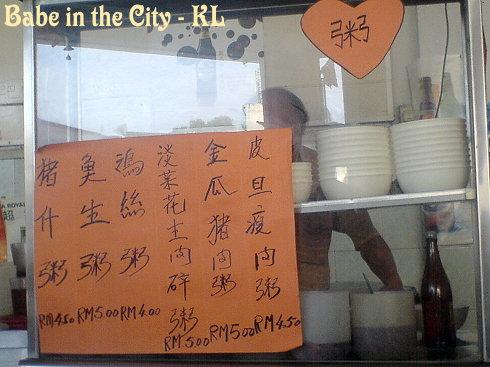 Babe in the City - KL
粥
猪什粥 RM4.50
魚生粥 RM5.00
鸡絲粥 RM4.00
淡菜花生肉碎粥 RM5.00
金瓜猪肉粥 RM5.00
皮旦瘦肉粥 RM4.50